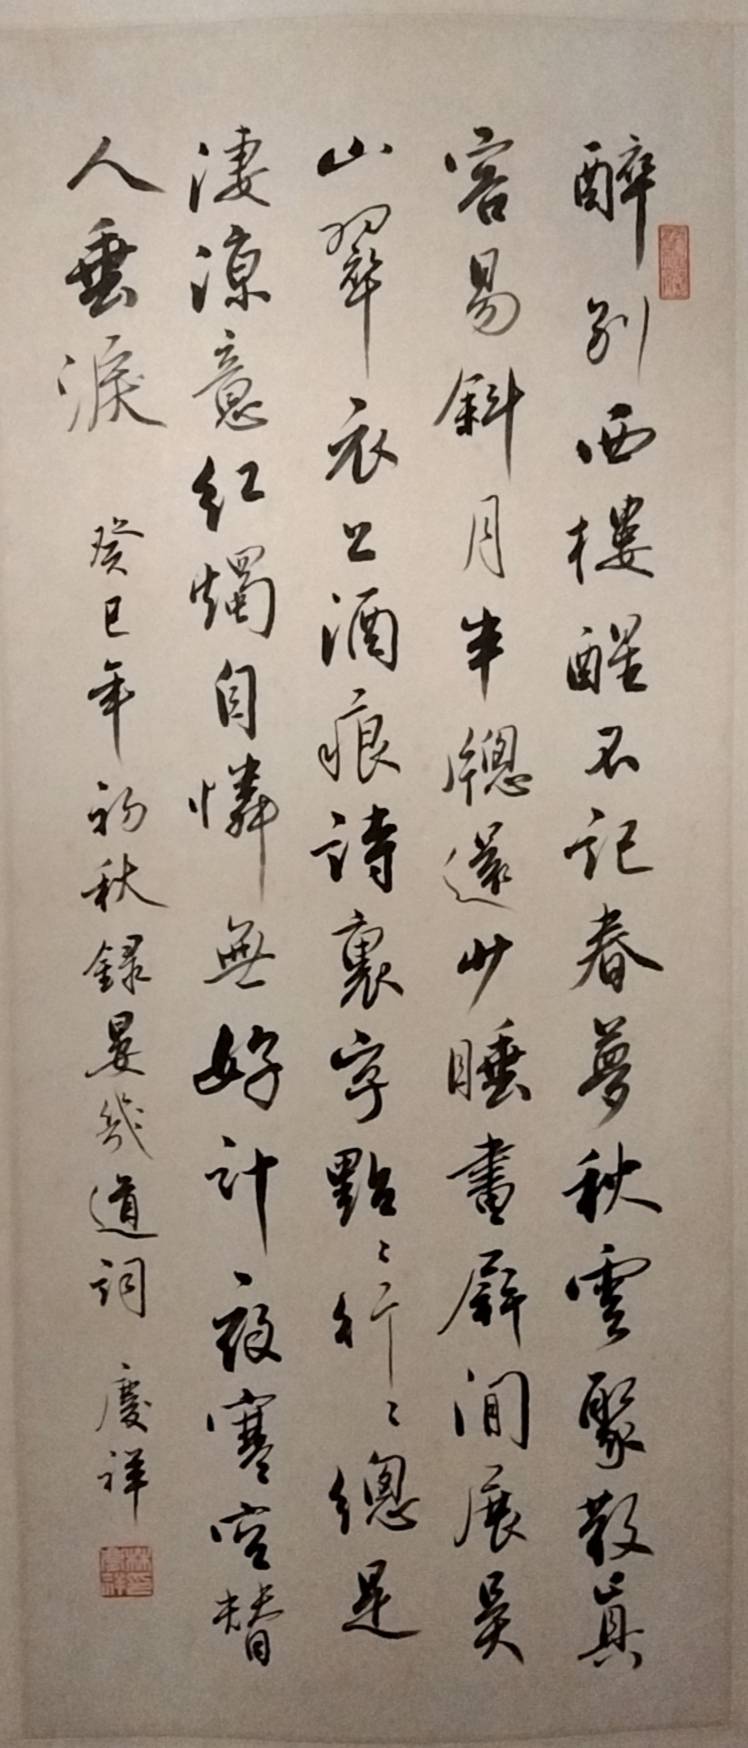 醉別西樓醒不記春夢秋雲聚散真
容易斜月半牕還少睡畫屏閒展吳
山翠衣上酒痕詩裏字點〻行〻總是
淒涼意紅燭自憐無好計夜寒空替
人垂淚
癸巳年初秋録晏幾道詞 慶祥